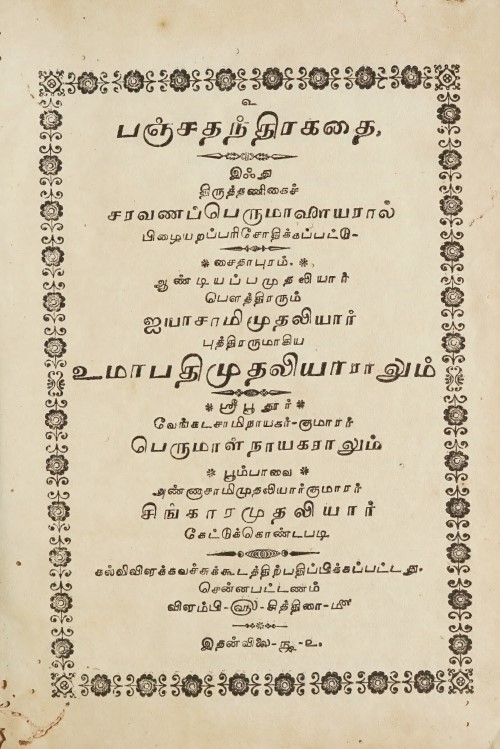 உ
பஞ்சதந்திரக்கதை,
இஃது
திருத்தணிகைச்
சரவணப்பெருமாளையரால்
பிழையறப்பரிசோதிக்கப்பட்டு-
* சைதாபுரம். *
ஆண்டியப்பமுதலியார்
பௌத்திரரும்
ஐயாசாமிமுதலியார்
புத்திரருமாகிய
உமாபதிமுதலியாராலும்
* ஸ்ரீபூதூர் *
வேங்கடசாமிநாயகர்-குமாரர்
பெருமாள்நாயகராலும்
* பூம்பாவை *
அண்ணாசாமிமுதலியார்குமாரர்
சிங்காரமுதலியார்
கேட்டுக்கொண்டபடி
கல்விவிளக்கவச்சுக்கூடத்திற்பதிப்பிக்கப்பட்டது.
சென்னபட்டணம்
விளம்பி-௵-சித்திரை-௴
இதன்விலை-ரூ-உ.